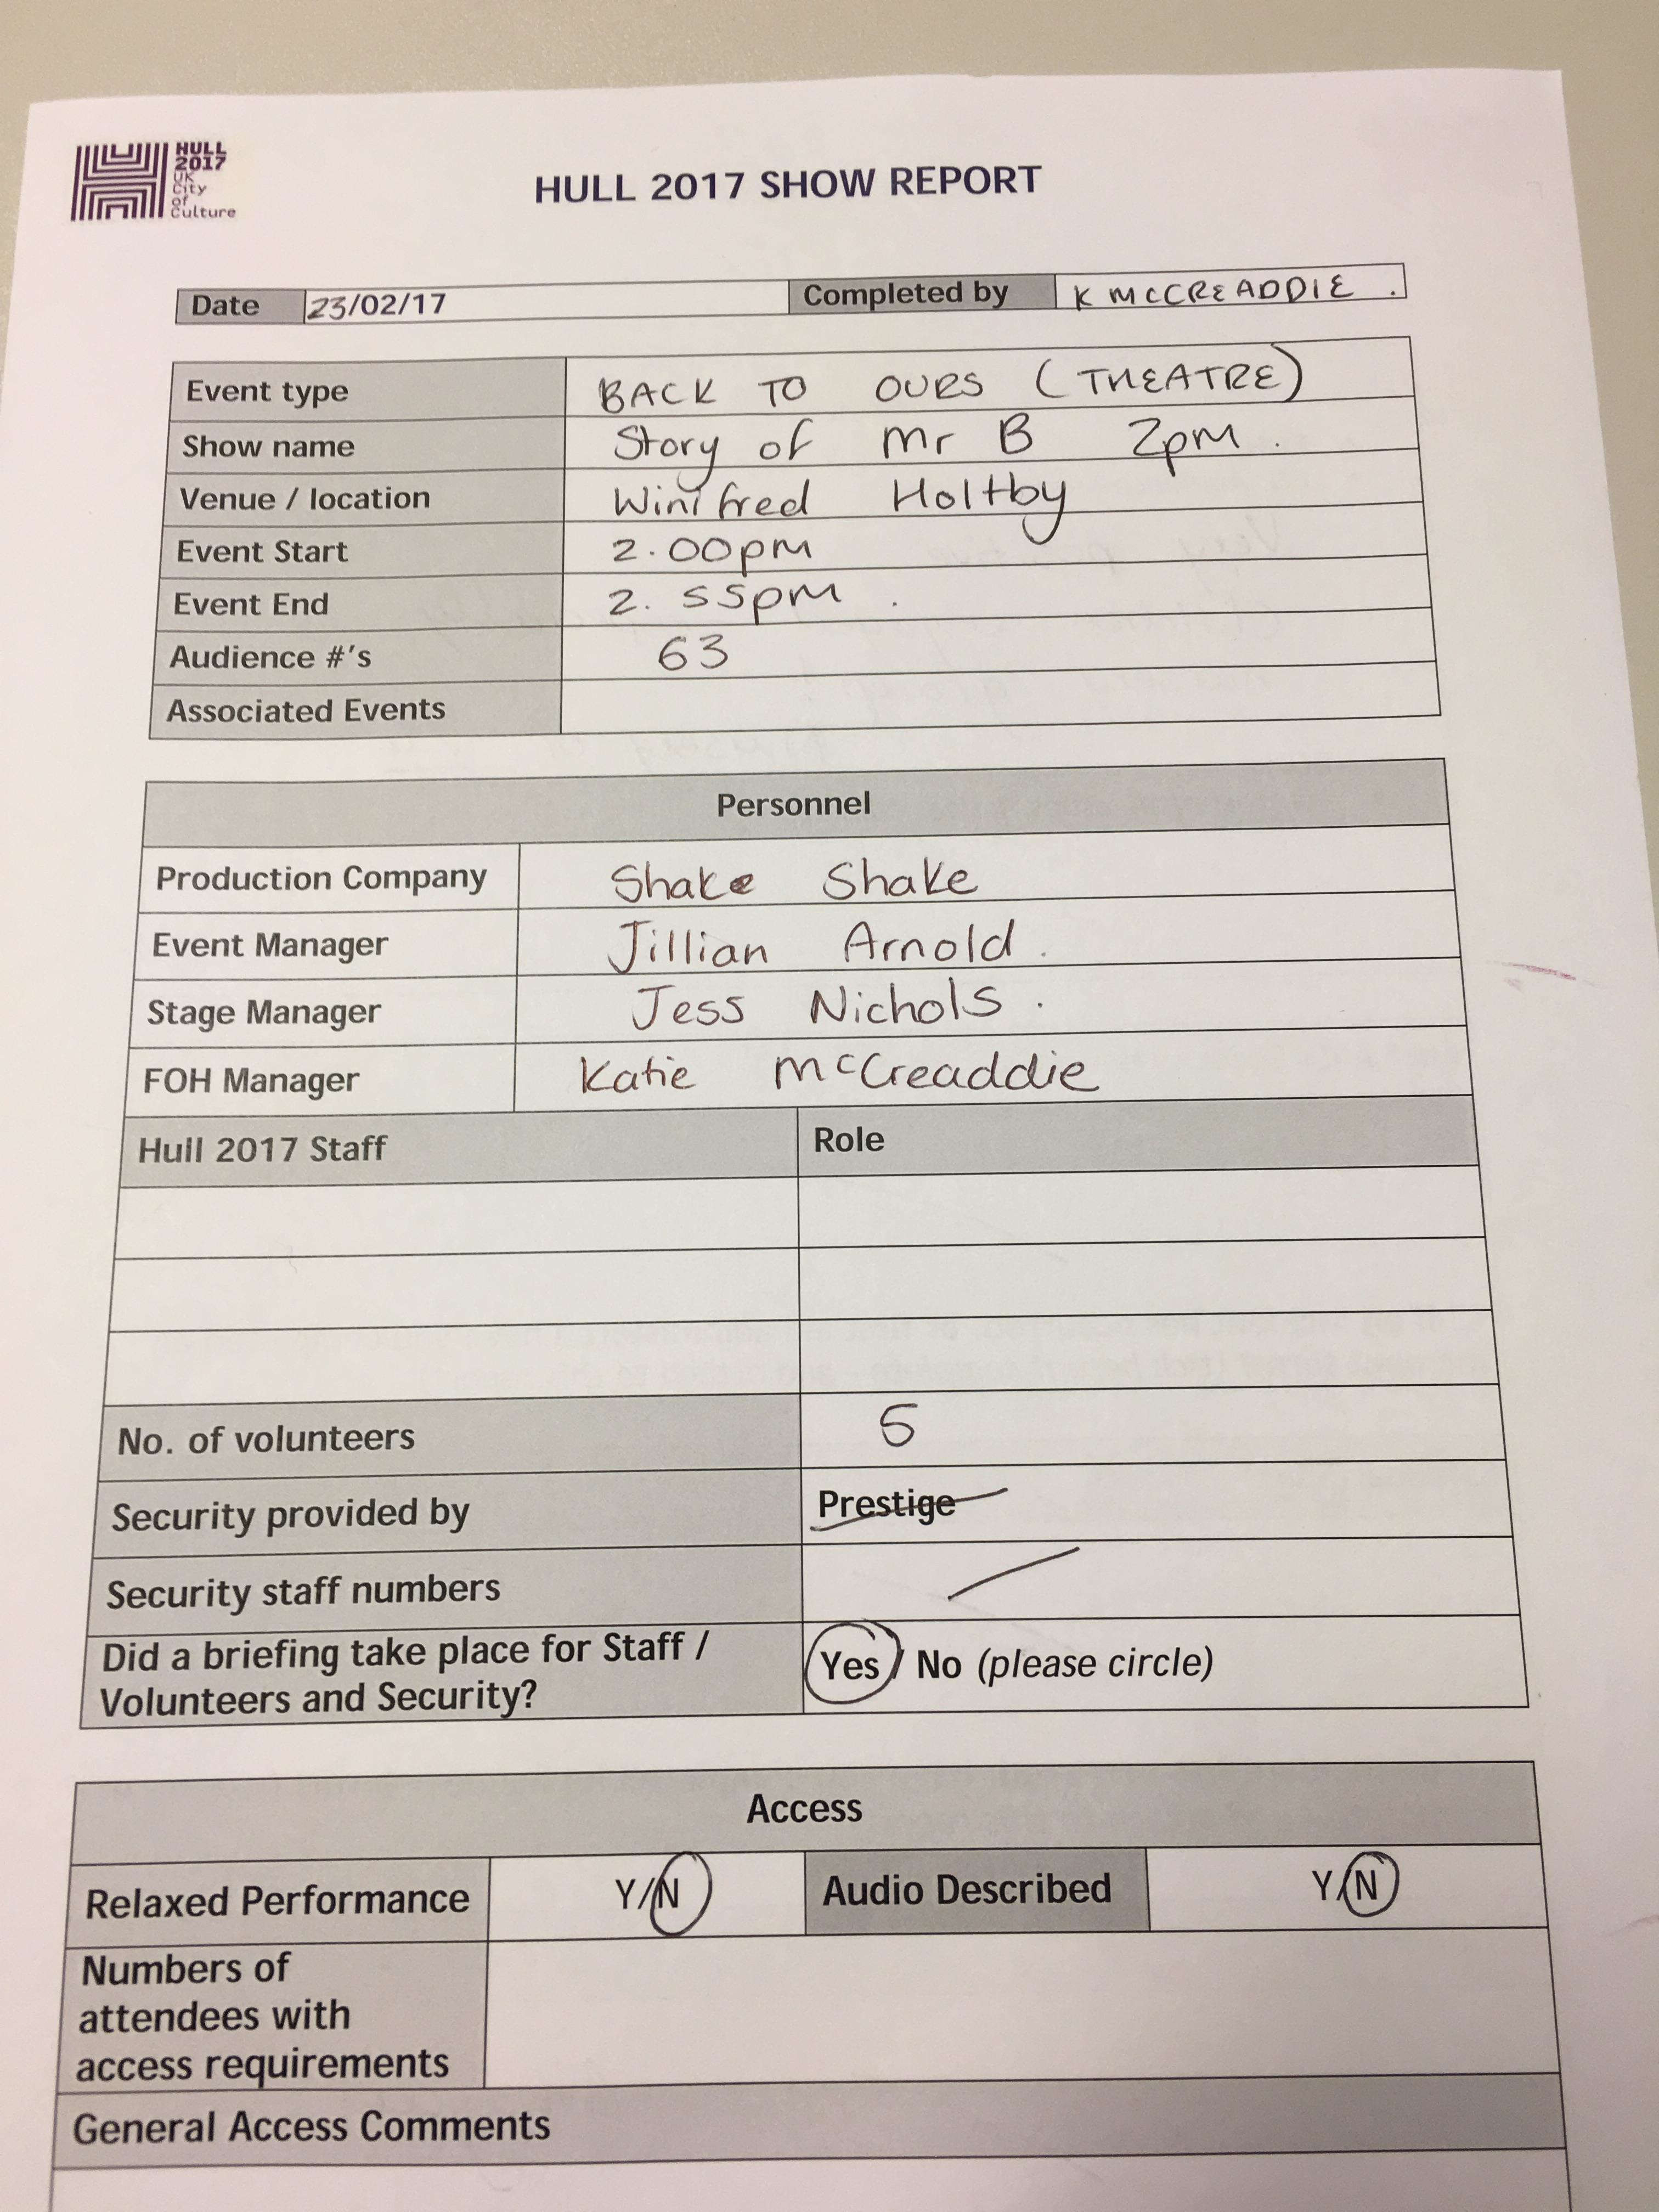 HULL
2017
UK
City
of
Culture
HULL 2017 SHOW REPORT
Date 23/02/17 Completed by K MCCREADDIE .
Event type BACK TO OURS (THEATRE)
Show name Story of Mr B 2pm .
Venue / location Winifred Holtby
Event Start 2.00pm
Event End 2. 55pm .
Audience #'s 63
Associated Events
Personnel
Production Company Shake Shake
Event Manager Jillian Arnold .
Stage Manager Jess Nichols .
FOH Manager Katie McCreaddie
Hull 2017 Staff Role
No. of volunteers 5
Security provided by Prestige
Security staff numbers
Did a briefing take place for Staff / Yes / No (please circle)
Volunteers and Security?
Access
Relaxed Performance Y/N Audio Described Y/N
Numbers of
attendees with
access requirements
General Access Comments